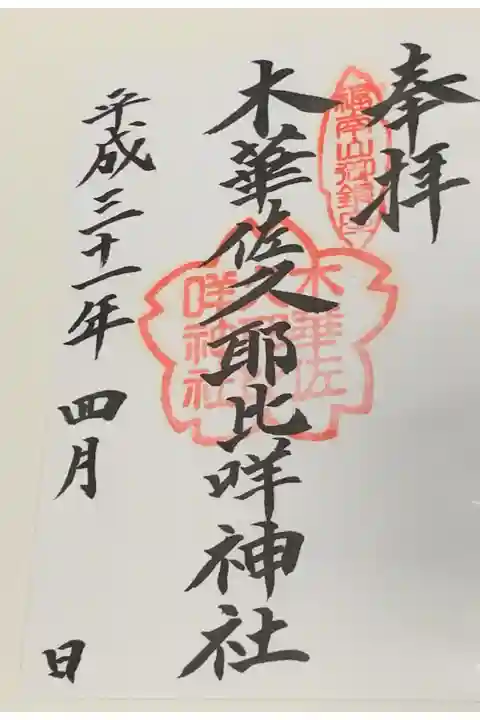 奉拝
木華佐久耶比咩神社
平成三十一年 四月 日
福南山御鎮座
木華佐
久耶比
咩神社